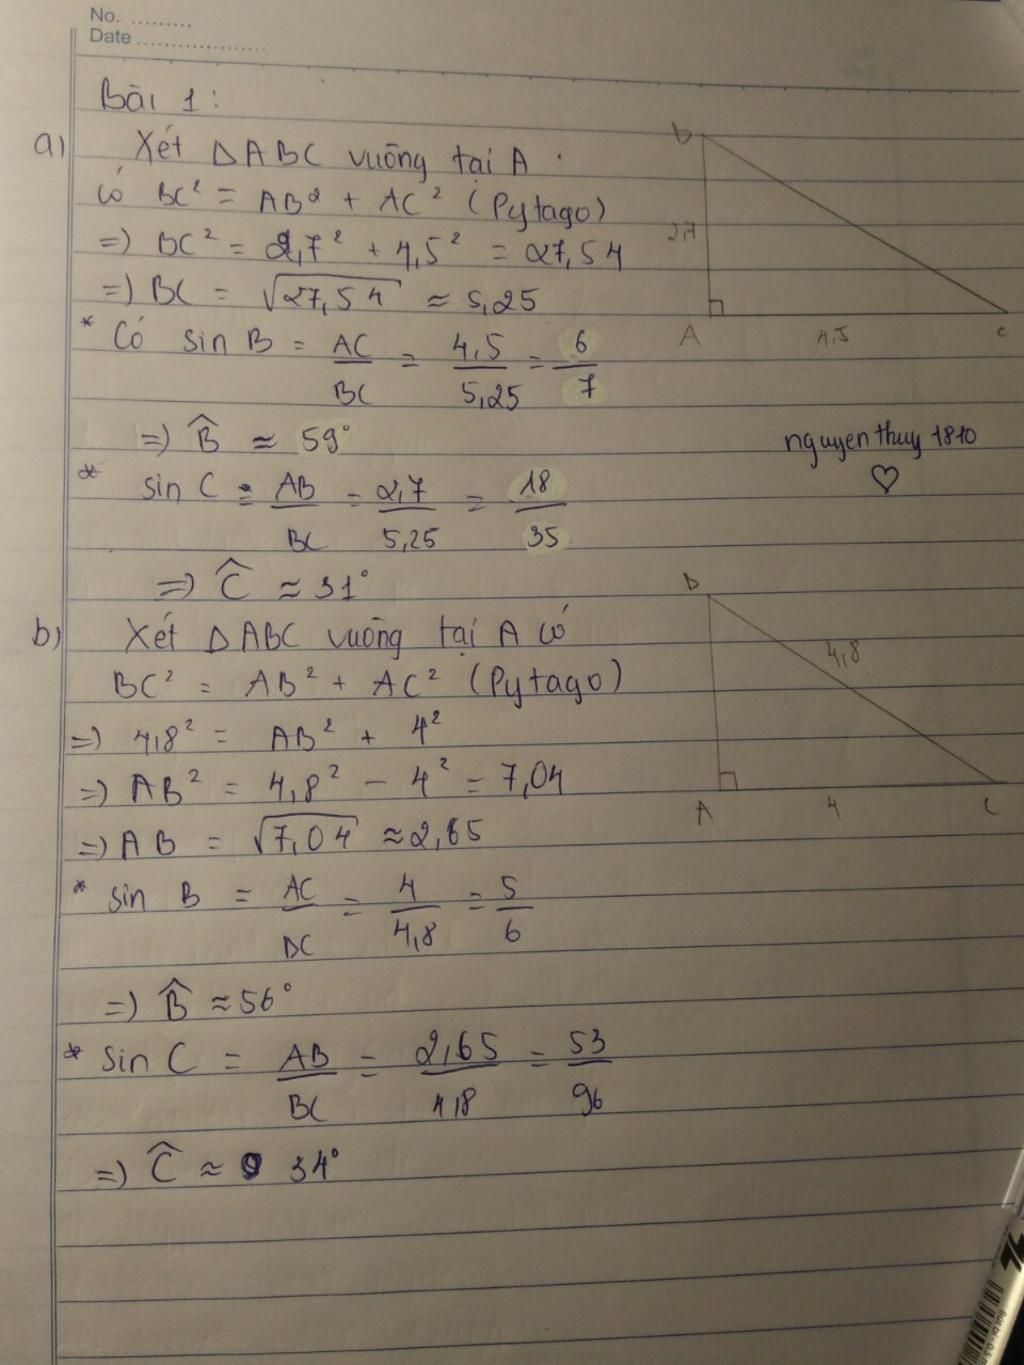 No. .........
Date ...................
Bài 1:
a) Xét △ABC vuông tại A.
Có BC² = AB² + AC² (Pytago)
=) BC² = 2,7² + 4,5² = 27,54
=) BC = √27,54 ≈ 5,25
* Có sin B = AC/BC = 4,5/5,25 = 6/7
=) B̂ ≈ 59°
* sin C = AB/BC = 2,7/5,25 = 18/35
=) Ĉ ≈ 31°
B
2,7
A 4,5 C
nguyenthuy1810
♡
b) Xét △ABC vuông tại A có
BC² = AB² + AC² (Pytago)
=) 4,8² = AB² + 4²
=) AB² = 4,8² - 4² = 7,04
=) AB = √7,04 ≈ 2,65
* sin B = AC/BC = 4/4,8 = 5/6
=) B̂ ≈ 56°
* sin C = AB/BC = 2,65/4,8 = 53/96
=) Ĉ ≈ 34°
B
4,8
A 4 C